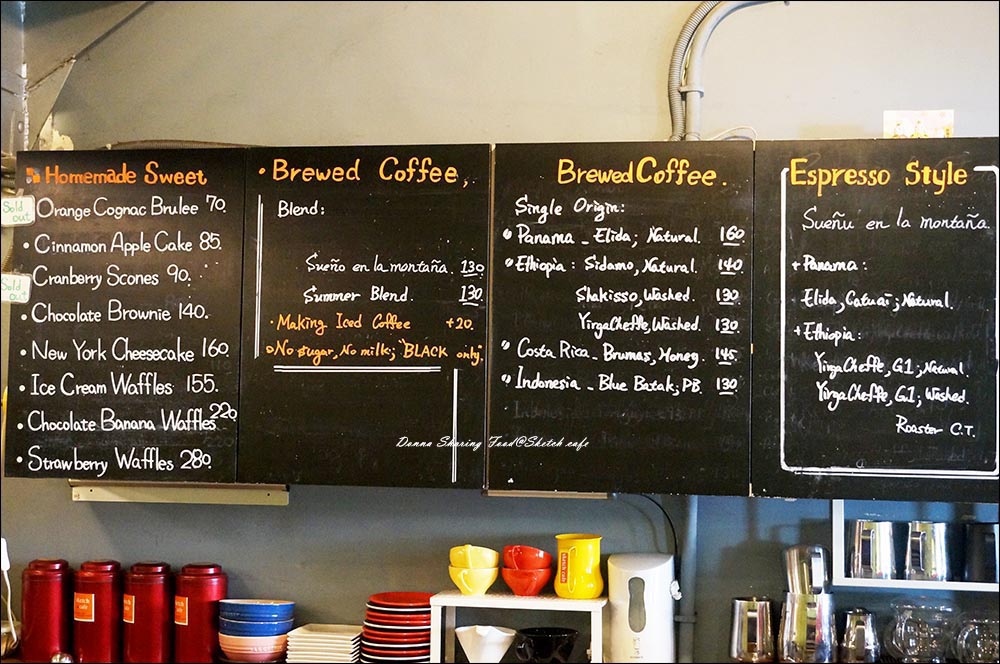 Homemade Sweet
Sold out
Orange Cognac Brulee 70.
• Cinnamon Apple Cake 85.
Sold out
Cranberry Scones 90.
• Chocolate Brownie 140.
• New York Cheesecake 160.
• Ice Cream Waffles 155.
• Chocolate Banana Waffles 220
• Strawberry Waffles 280.
• Brewed Coffee,
Blend:
Sueño en la montaña. 130
Summer Blend. 130
• Making Iced Coffee +20.
No sugar, No milk; "BLACK only"
Brewed Coffee.
Single Origin:
Panama - Elida; Natural. 160
Ethiopia: Sidamo, Natural. 140
Shakisso, Washed. 130
YirgaCheffe, Washed. 130
Costa Rica - Brumas, Honey. 145
Indonesia - Blue Batak; PB. 130
Espresso Style
Sueñu en la montaña.
+ Panama:
Elida, Catuai; Natural.
+ Ethiopia:
YirgaCheffe, G1; Natural.
YirgaCheffe, G1; Washed.
Roaster C.T.
Donna Sharing Food@Sketch cafe